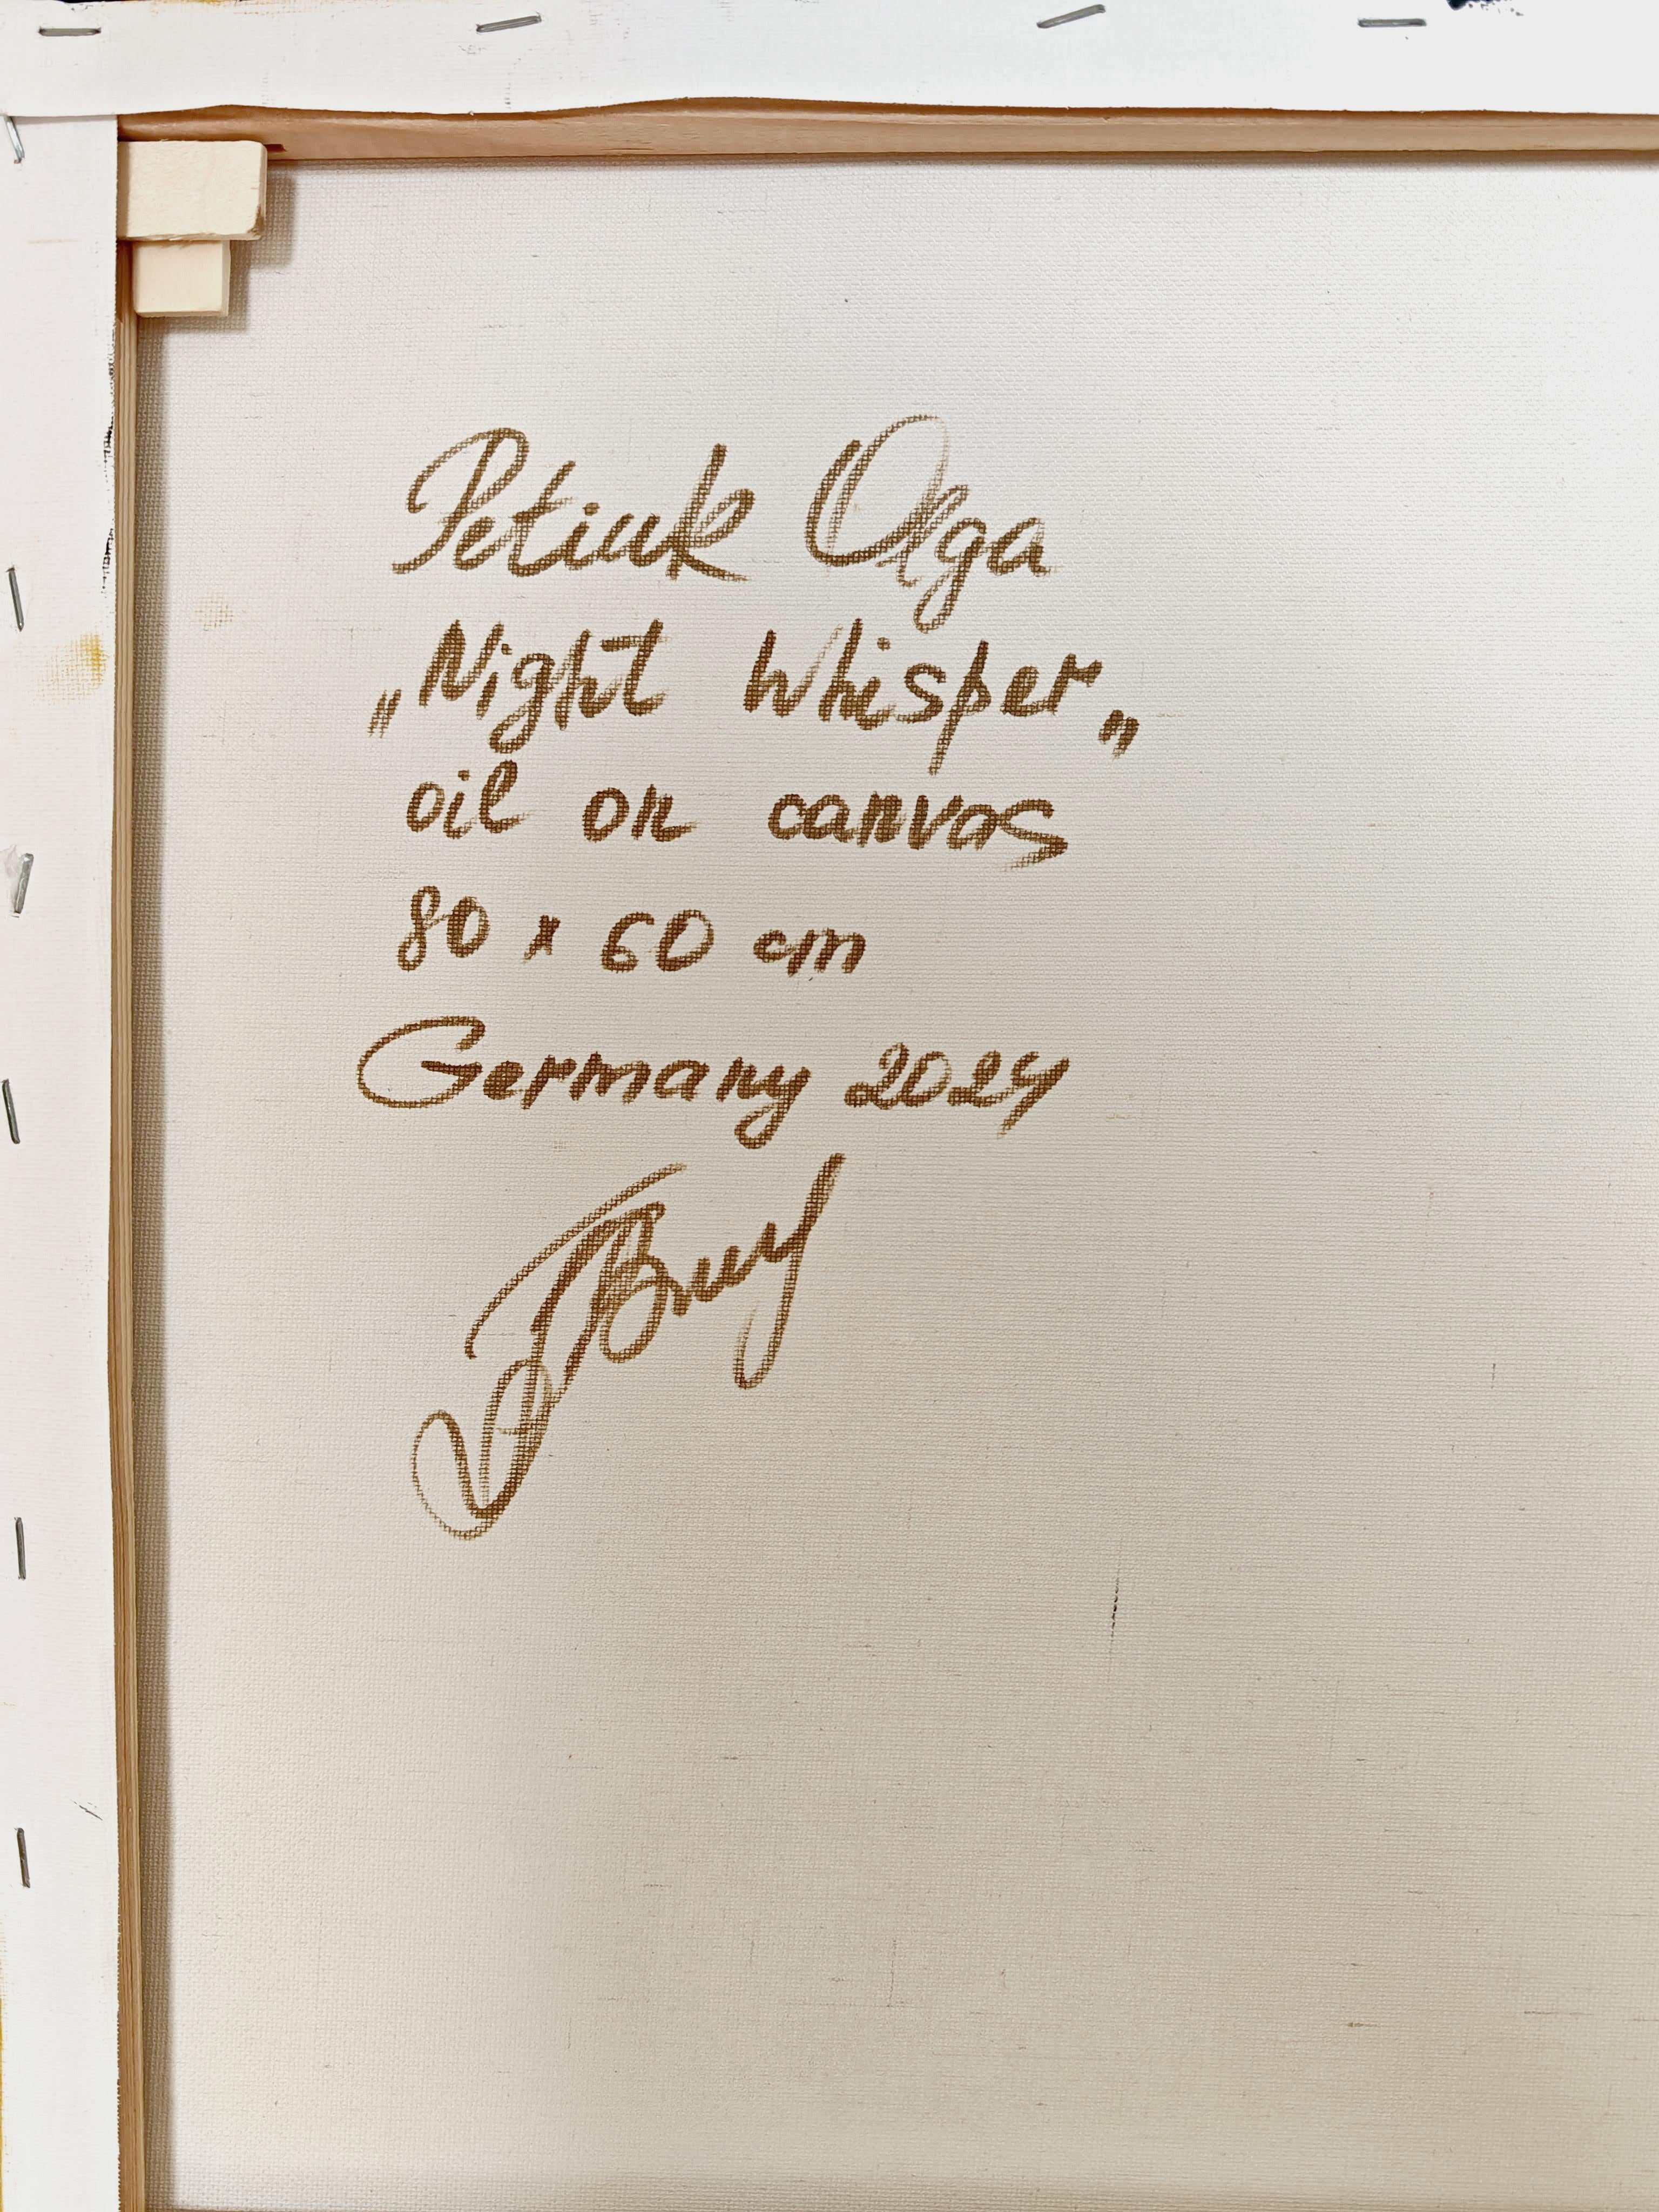 Petiuk Olga
„Night Whisper„
oil on canvas
80 x 60 cm
Germany 2024